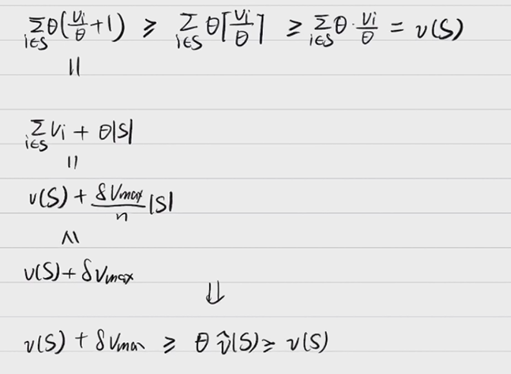 ∑_{i∈S} θ(v_i/θ + 1) ≥ ∑_{i∈S} θ⌈v_i/θ⌉ ≥ ∑_{i∈S} θ · v_i/θ = v(S)
||
∑_{i∈S} v_i + θ|S|
||
v(S) + δV_max/n |S|
≤
v(S) + δV_max
⇓
v(S) + δV_max ≥ θ v̂(S) ≥ v(S)